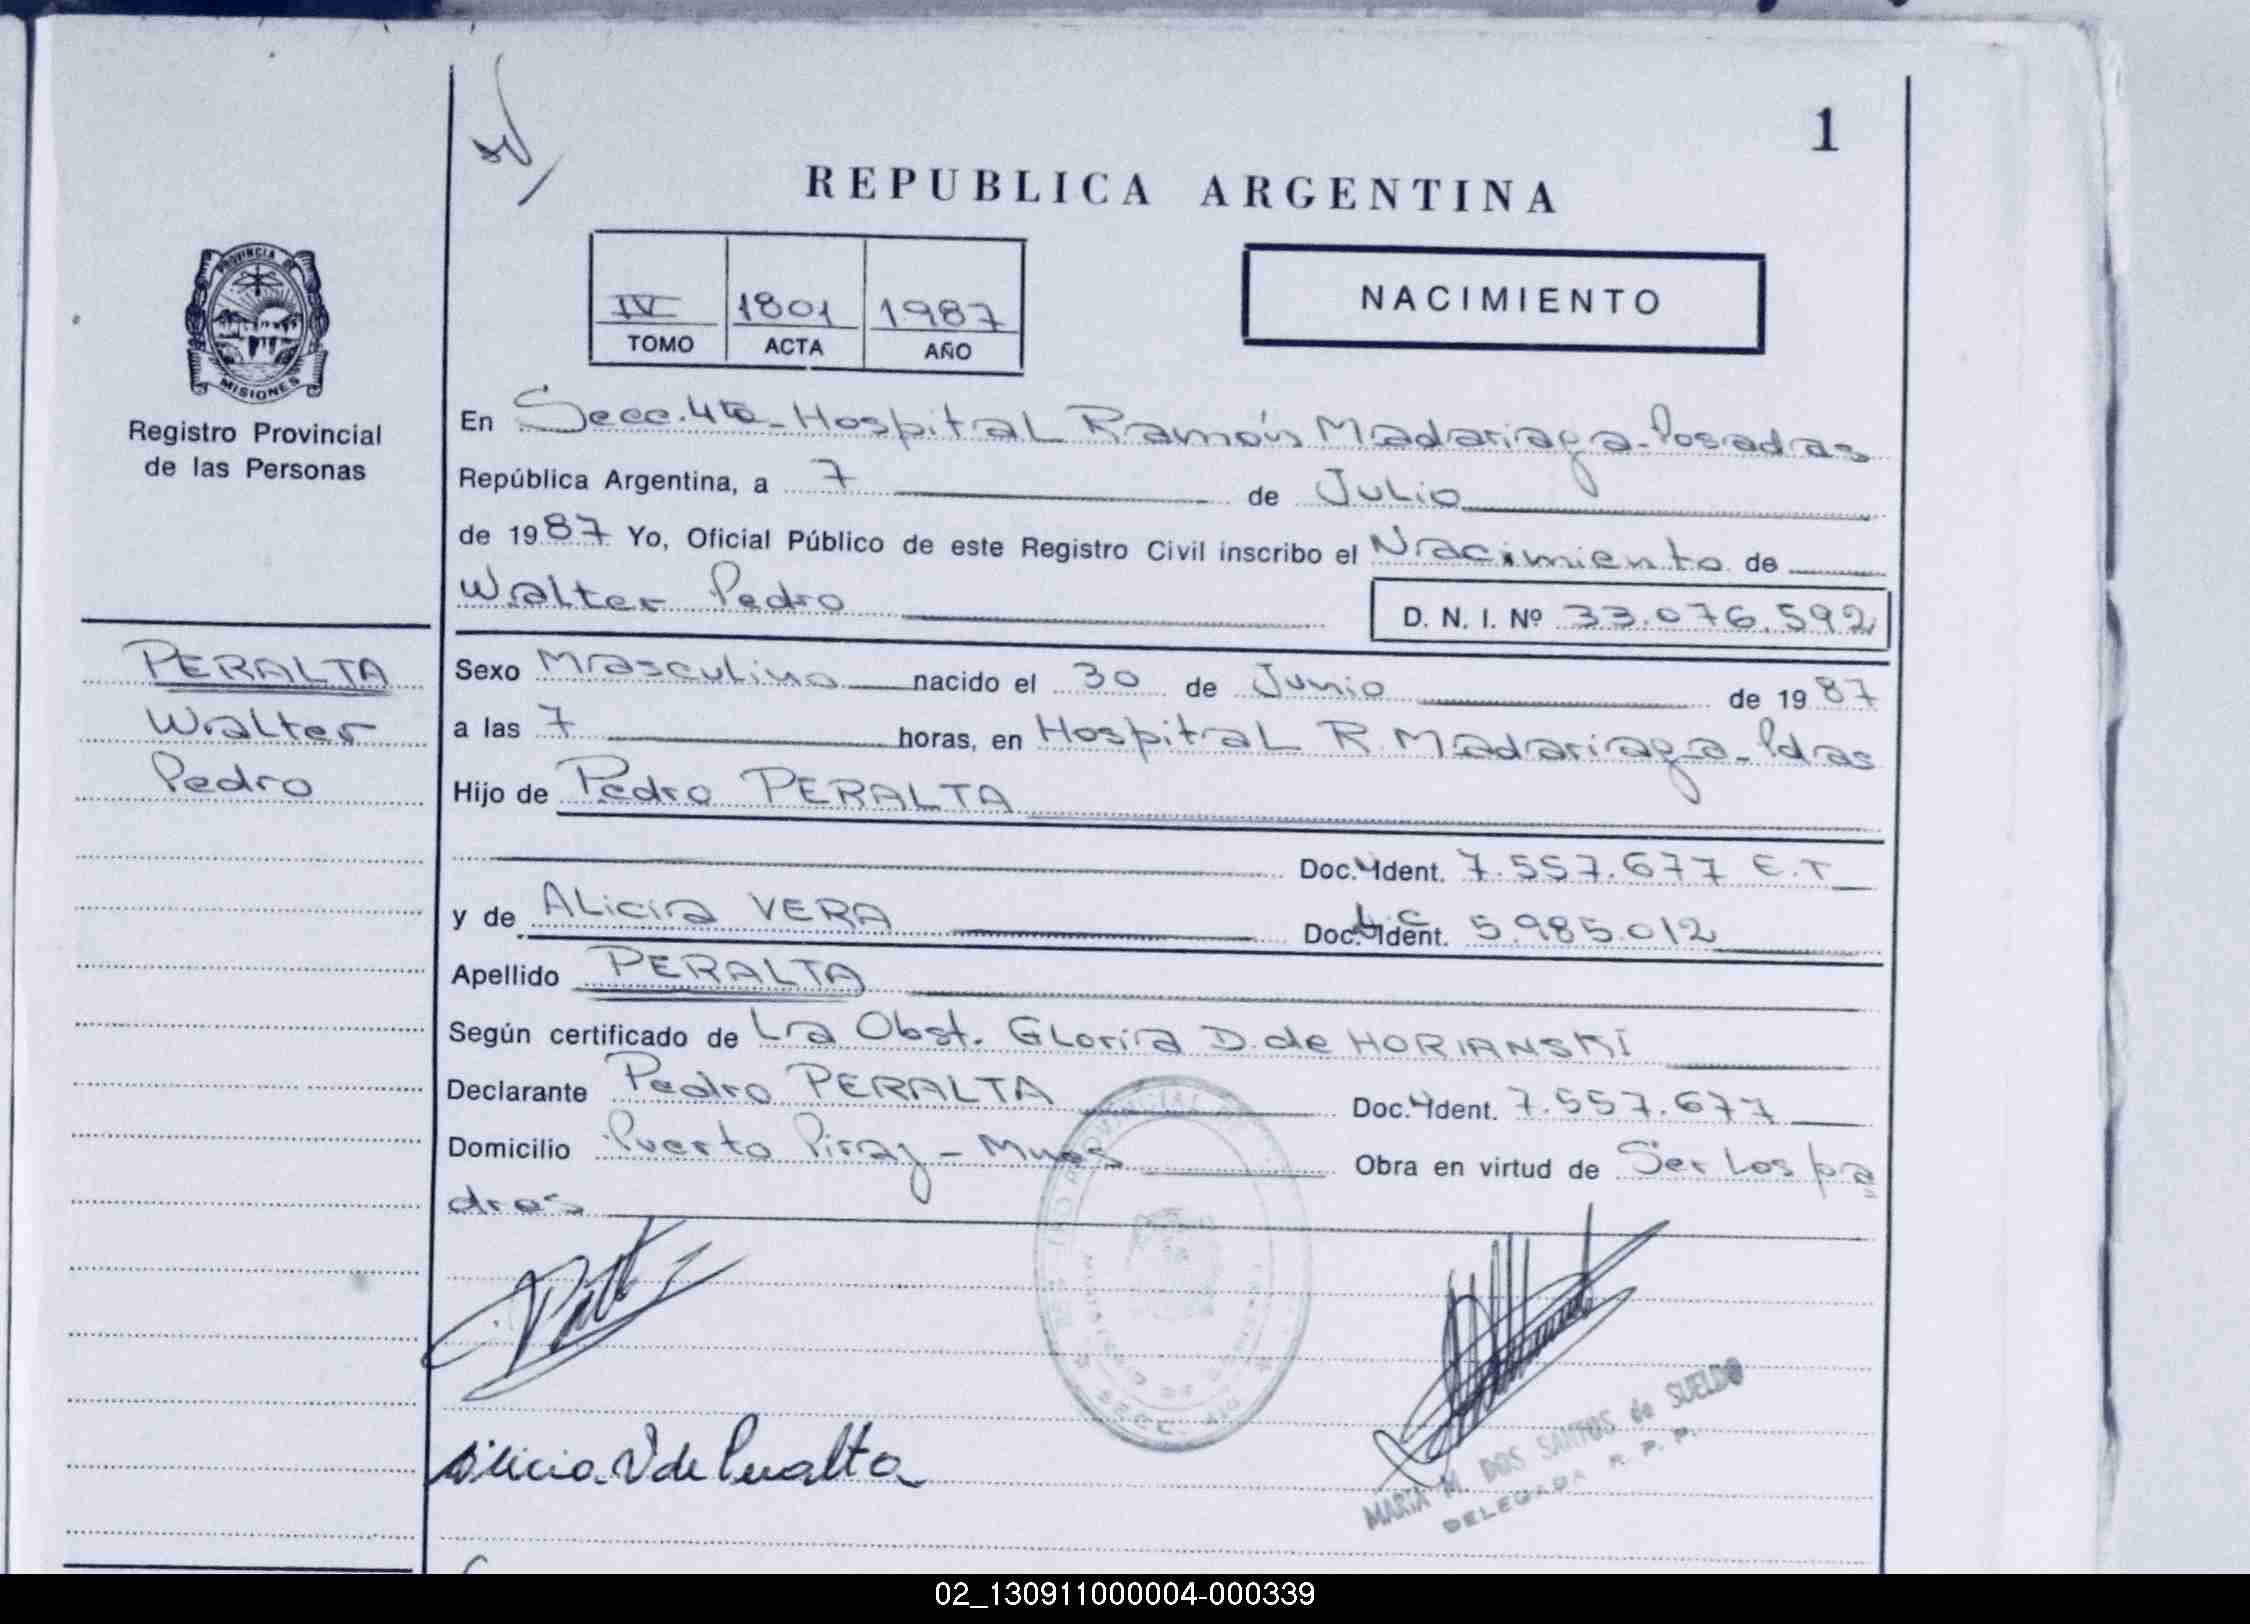 1
REPUBLICA ARGENTINA
PROVINCIA DE
MISIONES
Registro Provincial
de las Personas
IV 1801 1987
TOMO ACTA AÑO
NACIMIENTO
En Secc. 4ta - Hospital Ramón Madariaga - Posadas
República Argentina, a 7 de Julio
de 1987 Yo, Oficial Público de este Registro Civil inscribo el Nacimiento de
Walter Pedro
D. N. I. Nº 33.076.592
PERALTA
Walter
Pedro
Sexo Masculino nacido el 30 de Junio de 1987
a las 7 horas, en Hospital R. Madariaga - Pdas
Hijo de Pedro PERALTA
Doc. Ident. 7.557.677 E.T
y de ALicia VERA Doc. Ident. L.C 5.985.012
Apellido PERALTA
Según certificado de La Obst. GLoria D. de HORIANSKI
Declarante Pedro PERALTA Doc. Ident. 7.557.677
Domicilio Puerto Piray - Mnes Obra en virtud de Ser Los pa
dres
Alicia V de Peralta
MARIA M. DOS SANTOS de SUELDO
DELEGADA R. P. P.
02_130911000004-000339